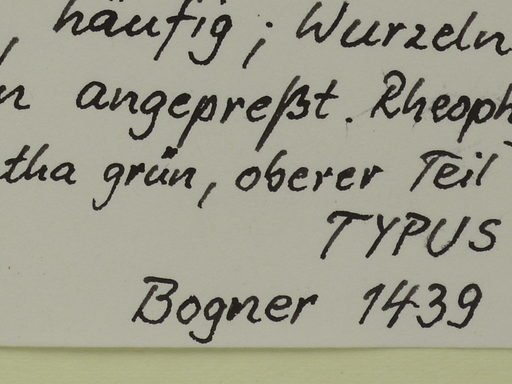 häufig; Wurzeln
angepreßt. Rheoph
tha grün, oberer Teil
TYPUS
Bogner 1439